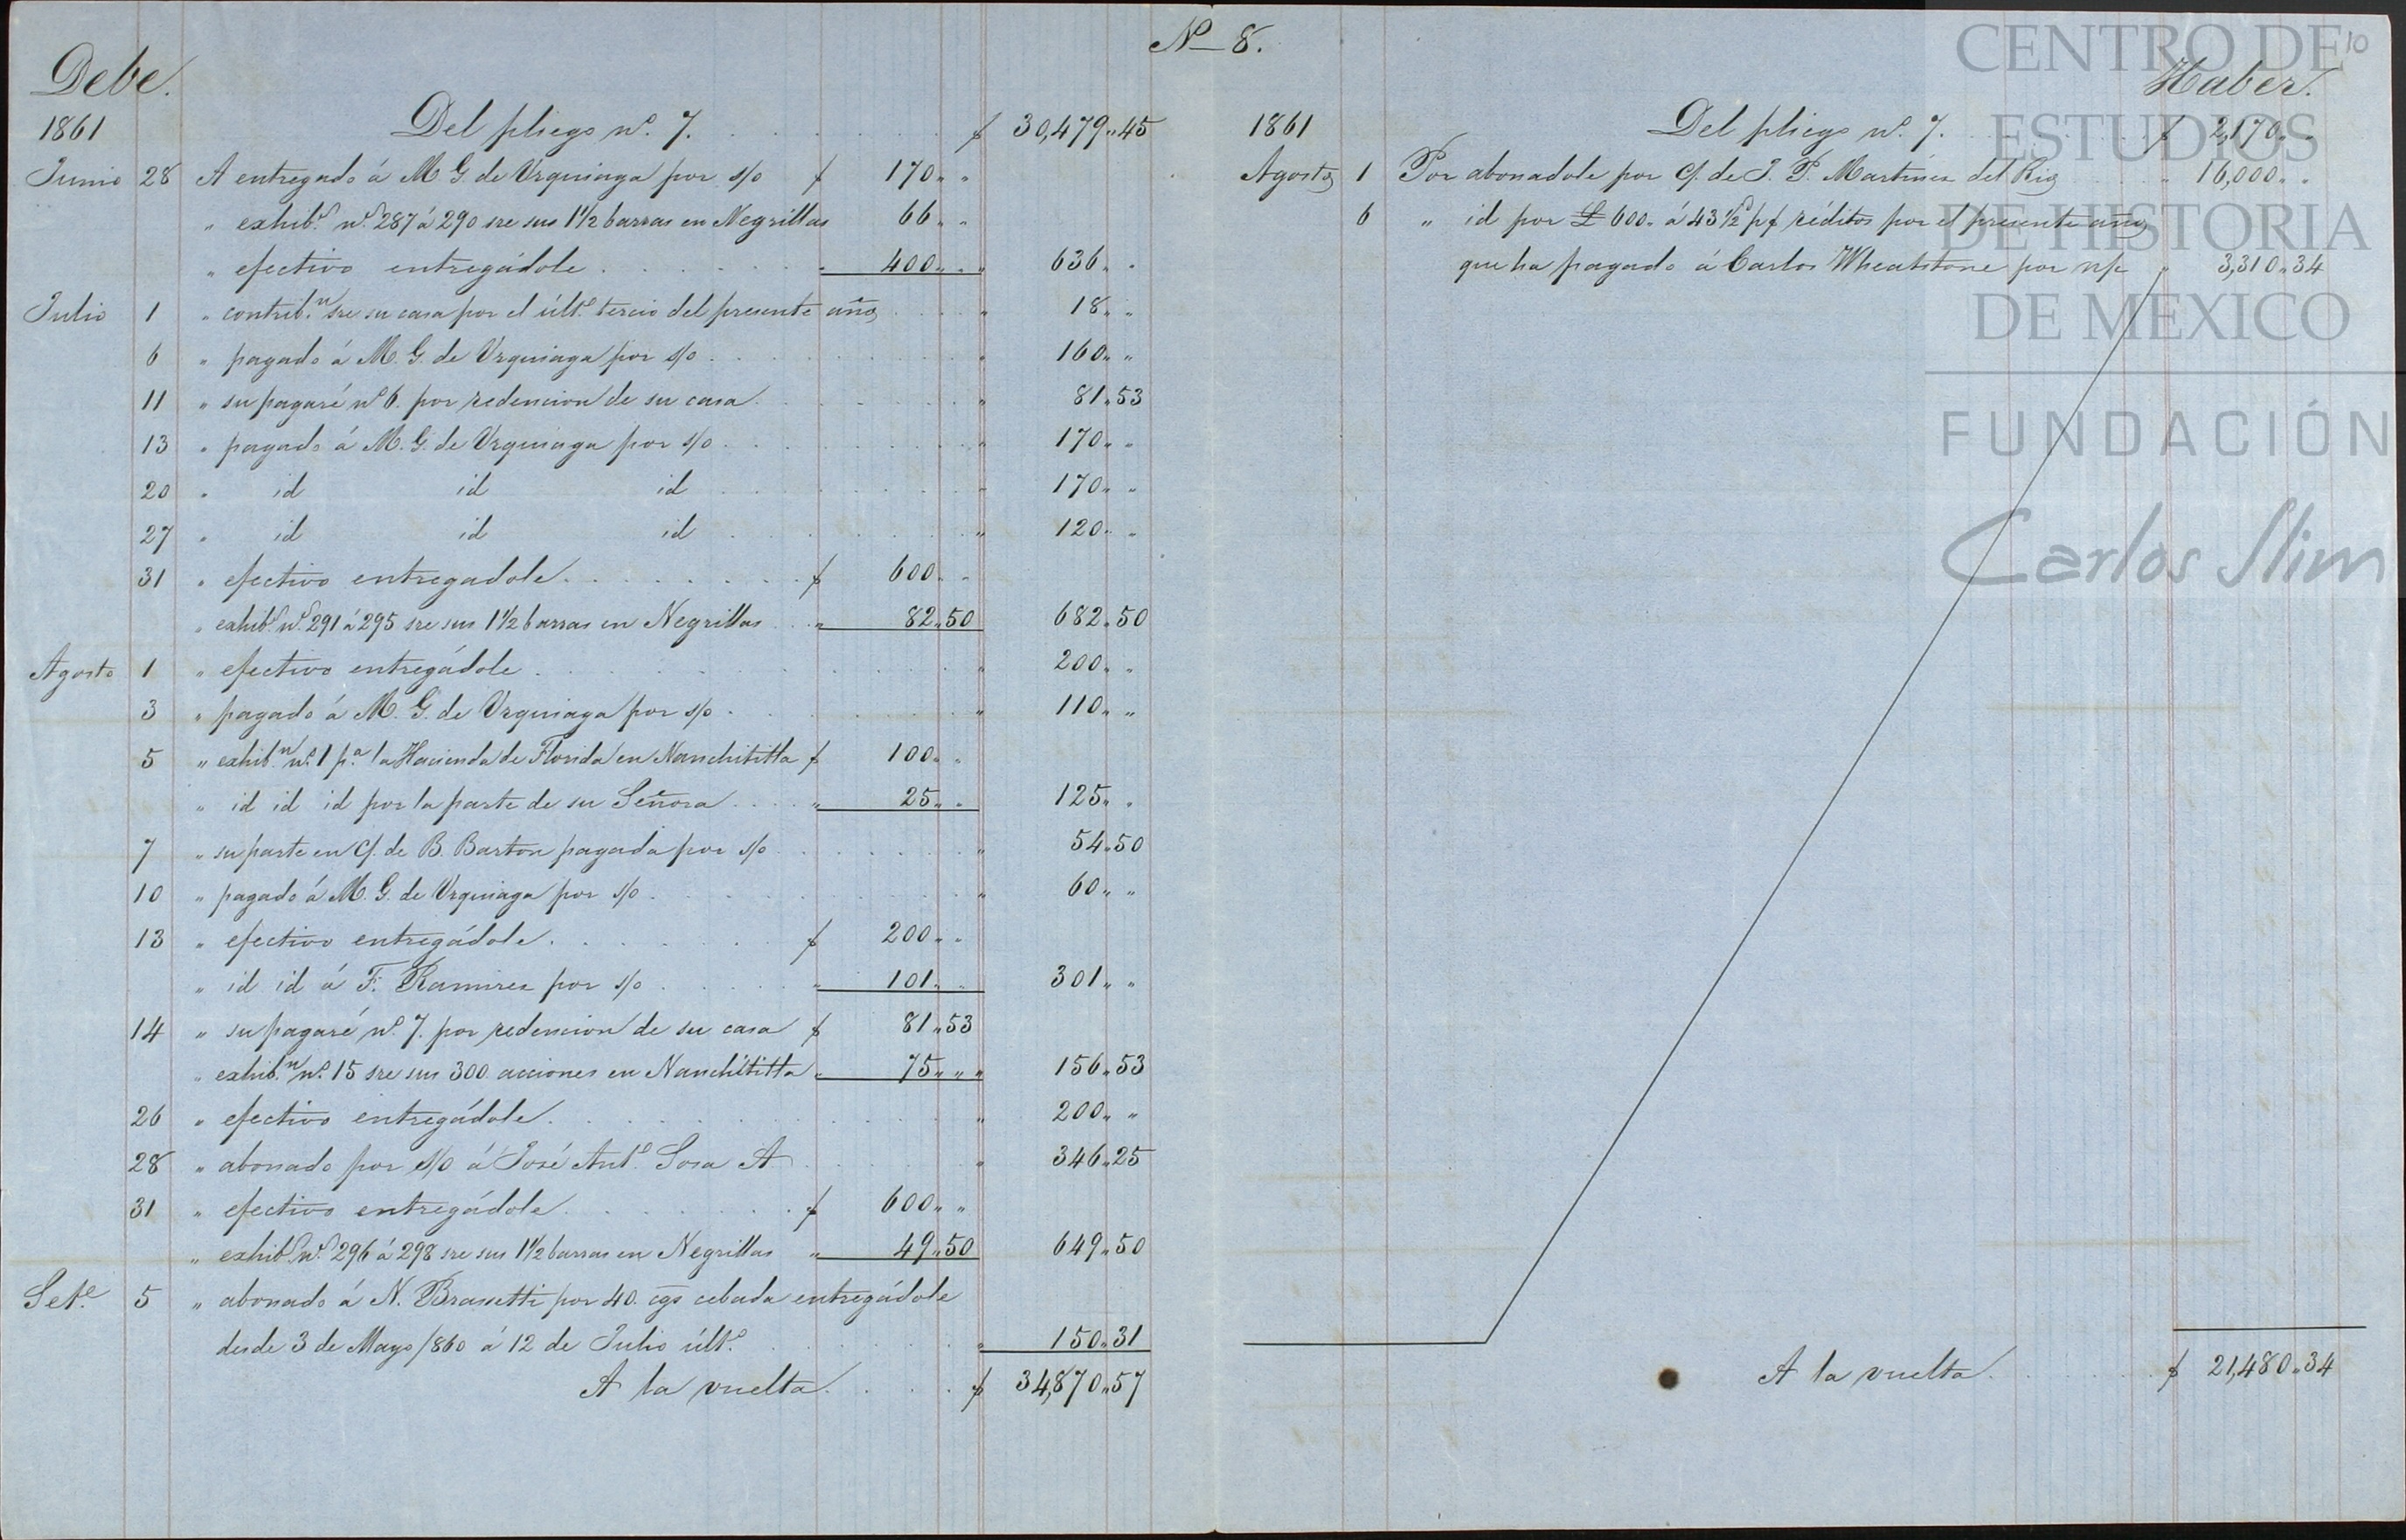 Nº 8.
Debe.
1861 Del pliego nº. 7. . . . . . . . $ 30,479„45
Junio 28 A entregado á M. G. de Urquiaga por s/o $ 170„ „
„ exhibs. nos. 287 á 290 sre sus 1 1/2 barras en Negrillas 66„ „
„ efectivo entregádole . . . . . . „ 400„ „ „ 636„ „
Julio 1 „ contribn. sre su casa por el últº. tercio del presente año . . . „ 18„ „
6 „ pagado á M. G. de Urquiaga por s/o . . . . . . „ 160„ „
11 „ su pagaré nº 6. por redencion de su casa . . . . . „ 81„53
13 „ pagado á M. G. de Urquiaga por s/o . . . . . . „ 170„ „
20 „ id id id . . . . . . „ 170„ „
27 „ id id id . . . . . . „ 120„ „
31 „ efectivo entregadole . . . . . . . $ 600„ „
„ exhibs. nos. 291 á 295 sre sus 1 1/2 barras en Negrillas . . „ 82„50 682„50
Agosto 1 „ efectivo entregádole . . . . . . . „ 200„ „
3 „ pagado á M. G. de Urquiaga por s/o . . . . . . „ 110„ „
5 „ exhibn. nº. 1 pa. la Hacienda de Florida en Nanchititla $ 100„ „
„ id id id por la parte de su Señora . . . . „ 25„ „ 125„ „
7 „ su parte en C/. de B. Barton pagada por s/o . . . . . „ 54„50
10 „ pagado á M. G. de Urquiaga por s/o . . . . . . „ 60„ „
13 „ efectivo entregádole . . . . . . $ 200„ „
„ id id á F. Ramirez por s/o . . . . . „ 101„ „ 301„ „
14 „ su pagaré nº. 7. por redencion de su casa $ 81„53
„ exhibn. nº. 15 sre sus 300 acciones en Nanchititla „ 75„ „ „ 156„53
26 „ efectivo entregádole . . . . . . . „ 200„ „
28 „ abonado por s/o á José Antº. Sosa A. . . . . . „ 346„25
31 „ efectivo entregádole . . . . . . . $ 600„ „
„ exhibs. nos. 296 á 298 sre sus 1 1/2 barras en Negrillas „ 49„50 649„50
Sete. 5 „ abonado á N. Brassetti por 40. cgs cebada entregádole
desde 3 de Mayo/860 á 12 de Julio últº. . . . . . . „ 150„31
A la vuelta . . . . $ 34,870„57
10
Haber.
1861 Del pliego nº. 7. . . . . . . $ 2,170„ „
Agosto 1 Por abonadole por C/. de J. P. Martinez del Rio . . . „ 16,000„ „
6 „ id por £ 600„ á 43 1/2 d p$ réditos por el presente año
que ha pagado á Carlos Wheatstone por n/c „ 3,310„34
A la vuelta . . . . . . $ 21,480„34
CENTRO DE
ESTUDIOS
DE HISTORIA
DE MEXICO
FUNDACIÓN
Carlos Slim